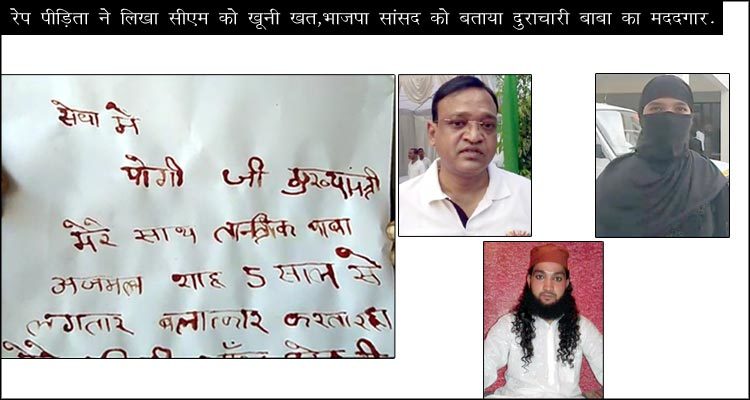 रेप पीड़िता ने लिखा सीएम को खूनी खत,भाजपा सांसद को बताया दुराचारी बाबा का मददगार.
सेवा मे
योगी जी मुख्यमंत्री
मेरे साथ तान्त्रिक बाबा
अजमल शाह 5 साल से
लगतार बलात्कार करता रहा